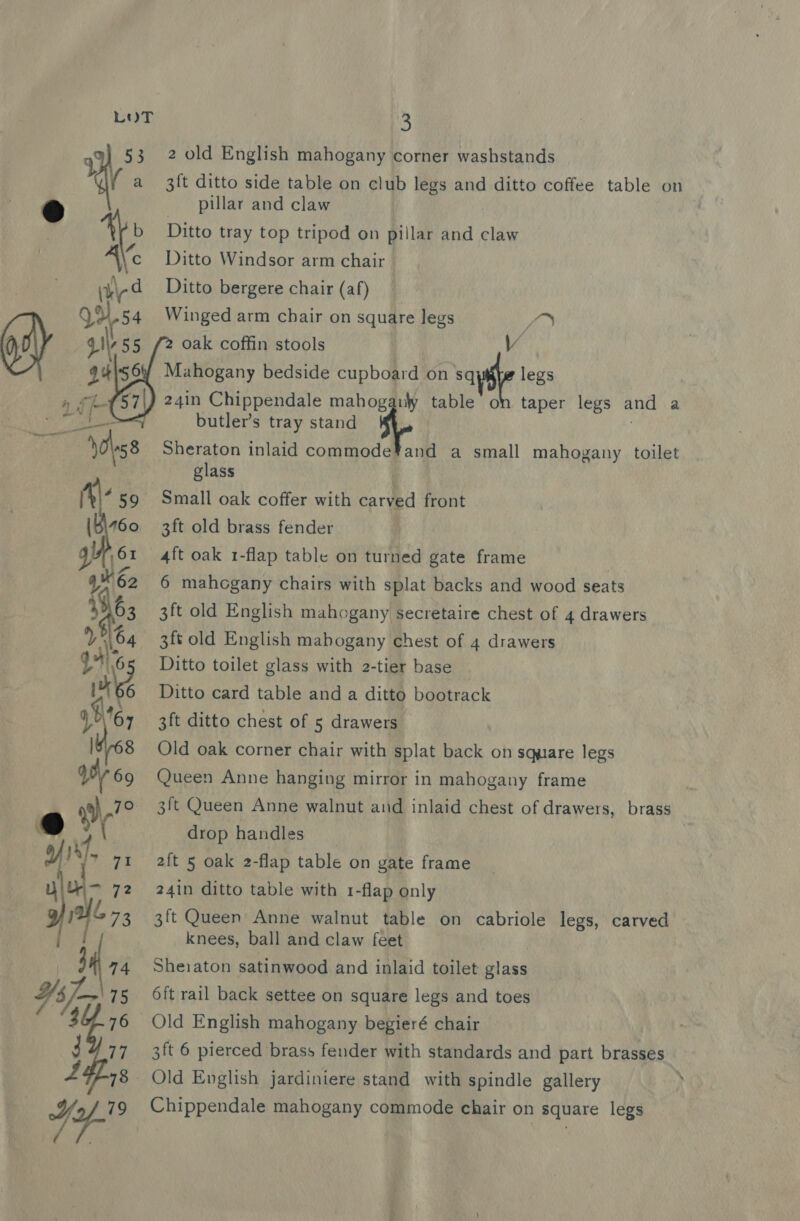 LOT 3
53 2 old English mahogany corner washstands
a 3ft ditto side table on club legs and ditto coffee table on
pillar and claw
b Ditto tray top tripod on pillar and claw
c Ditto Windsor arm chair
d Ditto bergere chair (af)
54 Winged arm chair on square legs
55 2 oak coffin stools
56 Mahogany bedside cupboard on square legs
57 24in Chippendale mahogany table on taper legs and a
butler's tray stand
58 Sheraton inlaid commode and a small mahogany toilet
glass
59 Small oak coffer with carved front
60 3ft old brass fender
61 4ft oak 1-flap table on turned gate frame
62 6 mahogany chairs with splat backs and wood seats
63 3ft old English mahogany secretaire chest of 4 drawers
64 3ft old English mahogany chest of 4 drawers
65 Ditto toilet glass with 2-tier base
66 Ditto card table and a ditto bootrack
67 3ft ditto chest of 5 drawers
68 Old oak corner chair with splat back on square legs
69 Queen Anne hanging mirror in mahogany frame
70 3ft Queen Anne walnut and inlaid chest of drawers, brass
drop handles
71 2ft 5 oak 2-flap table on gate frame
72 24in ditto table with 1-flap only
73 3ft Queen Anne walnut table on cabriole legs, carved
knees, ball and claw feet
74 Sheraton satinwood and inlaid toilet glass
75 6ft rail back settee on square legs and toes
76 Old English mahogany begieré chair
77 3ft 6 pierced brass fender with standards and part brasses
78 Old English jardiniere stand with spindle gallery
79 Chippendale mahogany commode chair on square legs